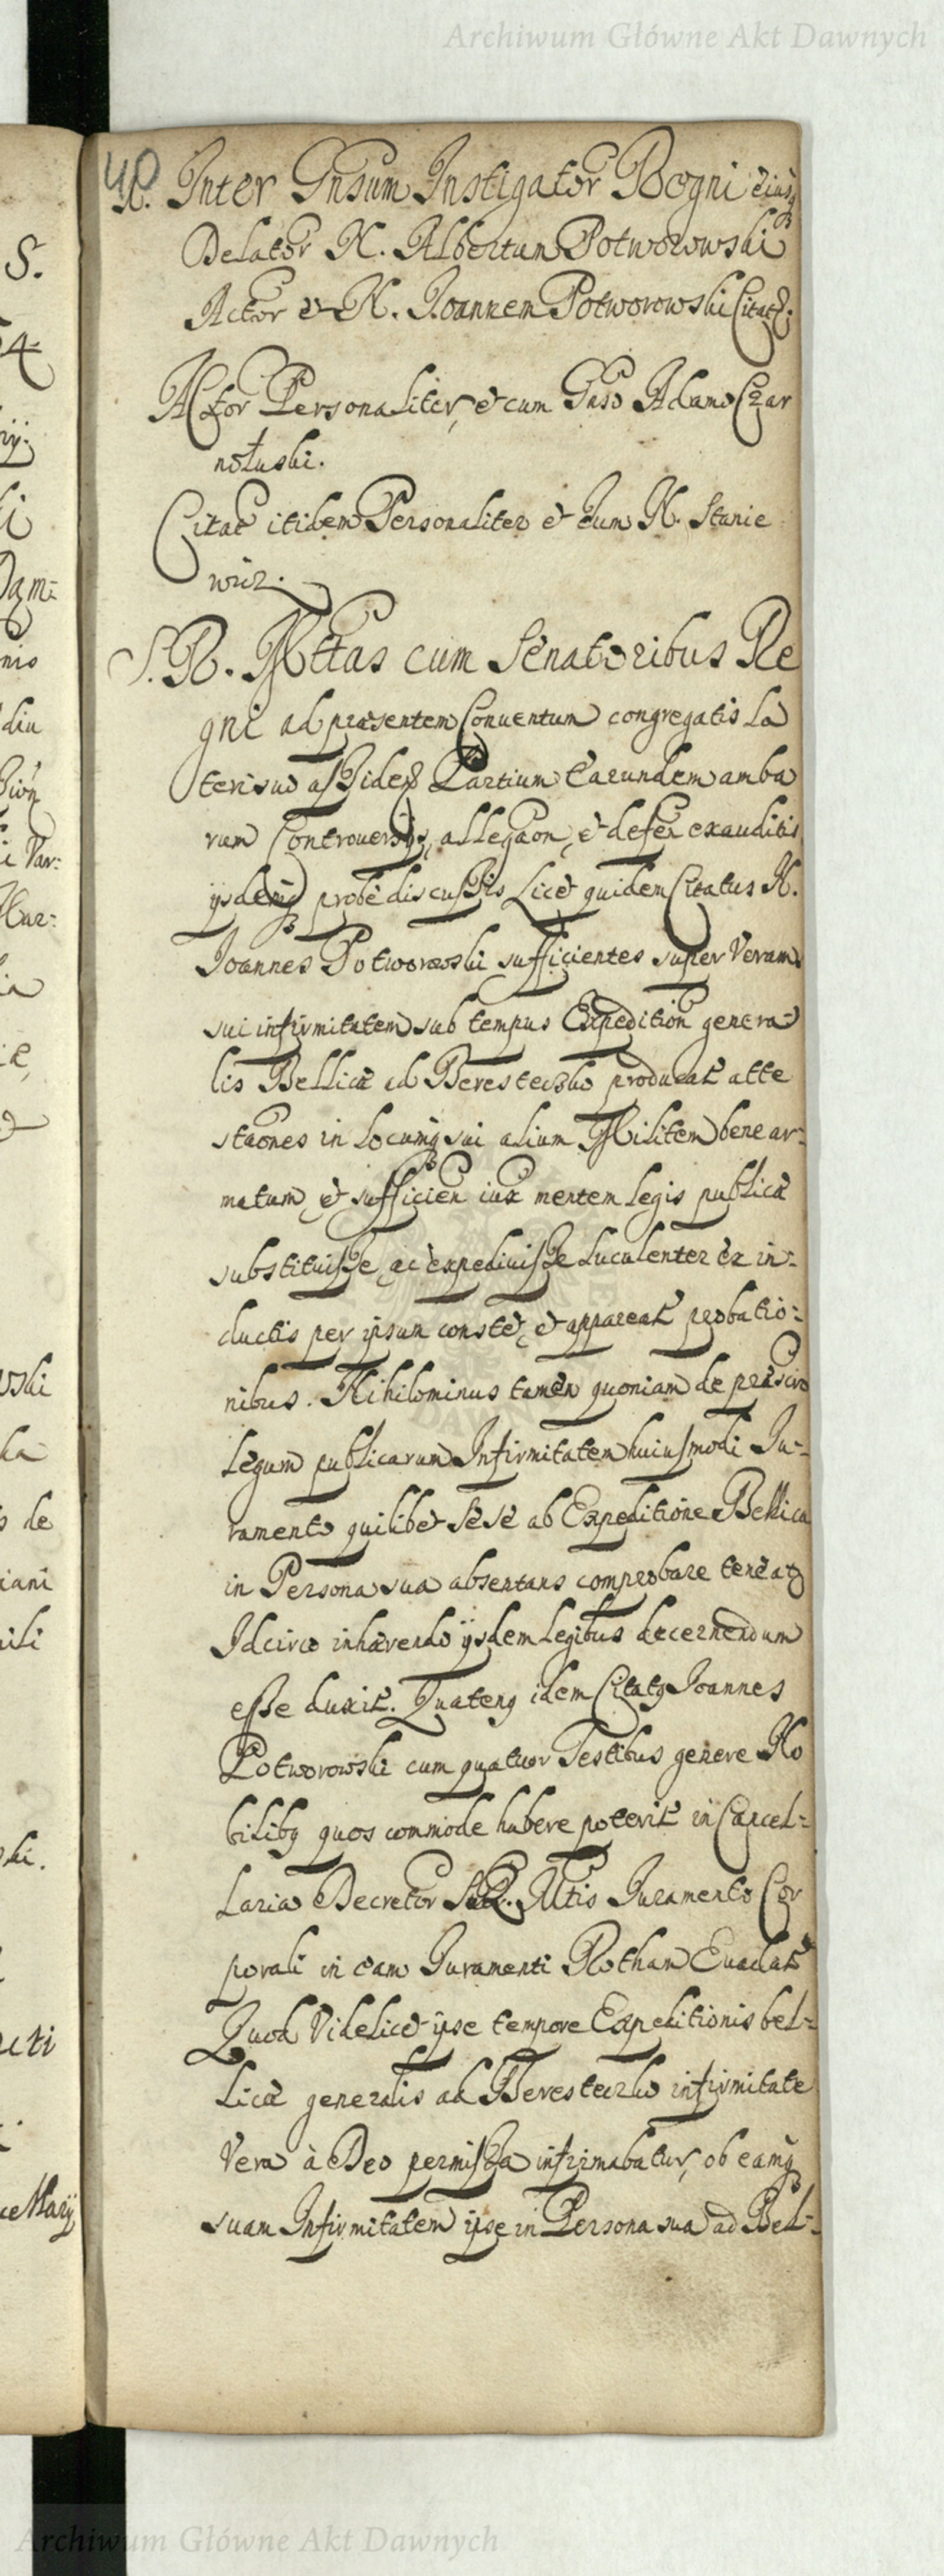 Archiwum Główne Akt Dawnych
40
N. Inter Gnsum Instigator Regni eiusq
Delator N. Albertum Potworowski
Actor & N. Joannem Potworowski Citat.
Actor Personaliter, & cum Gnso Adamo Czar
noluski.
Citat itidem Personaliter & cum N. Stanie
wicz.
S. R. Mttas cum Senatoribus Re
gni ad præsentem Conuentum congregatis La
teri suo assiden Partium Earundem amba
rum Controuersijs, allegaon, & defen exauditis
ijsdemq probè discussis Licet quidem Citatus N.
Joannes Potworowski sufficientes super Veram
sui infirmitatem sub tempus Expedition genera-
lis Bellicæ ad Beresteczko producat atte
staones in Locumq sui alium Militem bene ar-
matum & sufficien iux mentem Legis publicæ
substituisse ac expediuisse Luculenter ex in-
ductis per ipsum constet, & appareat probatio-
nibus. Nihilominus tamen quoniam de præscrip
Legum publicarum Infirmitatem huiusmodi Ju-
ramento quilibet sese ab Expeditione Bellica
in Persona sua absentans comprobare teneat
Idcirco inhærendo ijsdem Legibus decernendum
esse duxit. Quatenq idem Citatq Joannes
Potworowski cum quatuor Testibus genere No
bilibq quos commode habere poterit in Cancel-
laria Decretor S.R. Mttis Juramento Cor
porali in eam Juramenti Rotham Euadat
Quod Videlicet ipse tempore Expeditionis bel-
licæ generalis ad Beresteczko infirmitate
Vera à Deo permissa infirmabatur, ob eamq
suam Infirmitatem ipse in Persona sua ad Bel-
Archiwum Główne Akt Dawnych